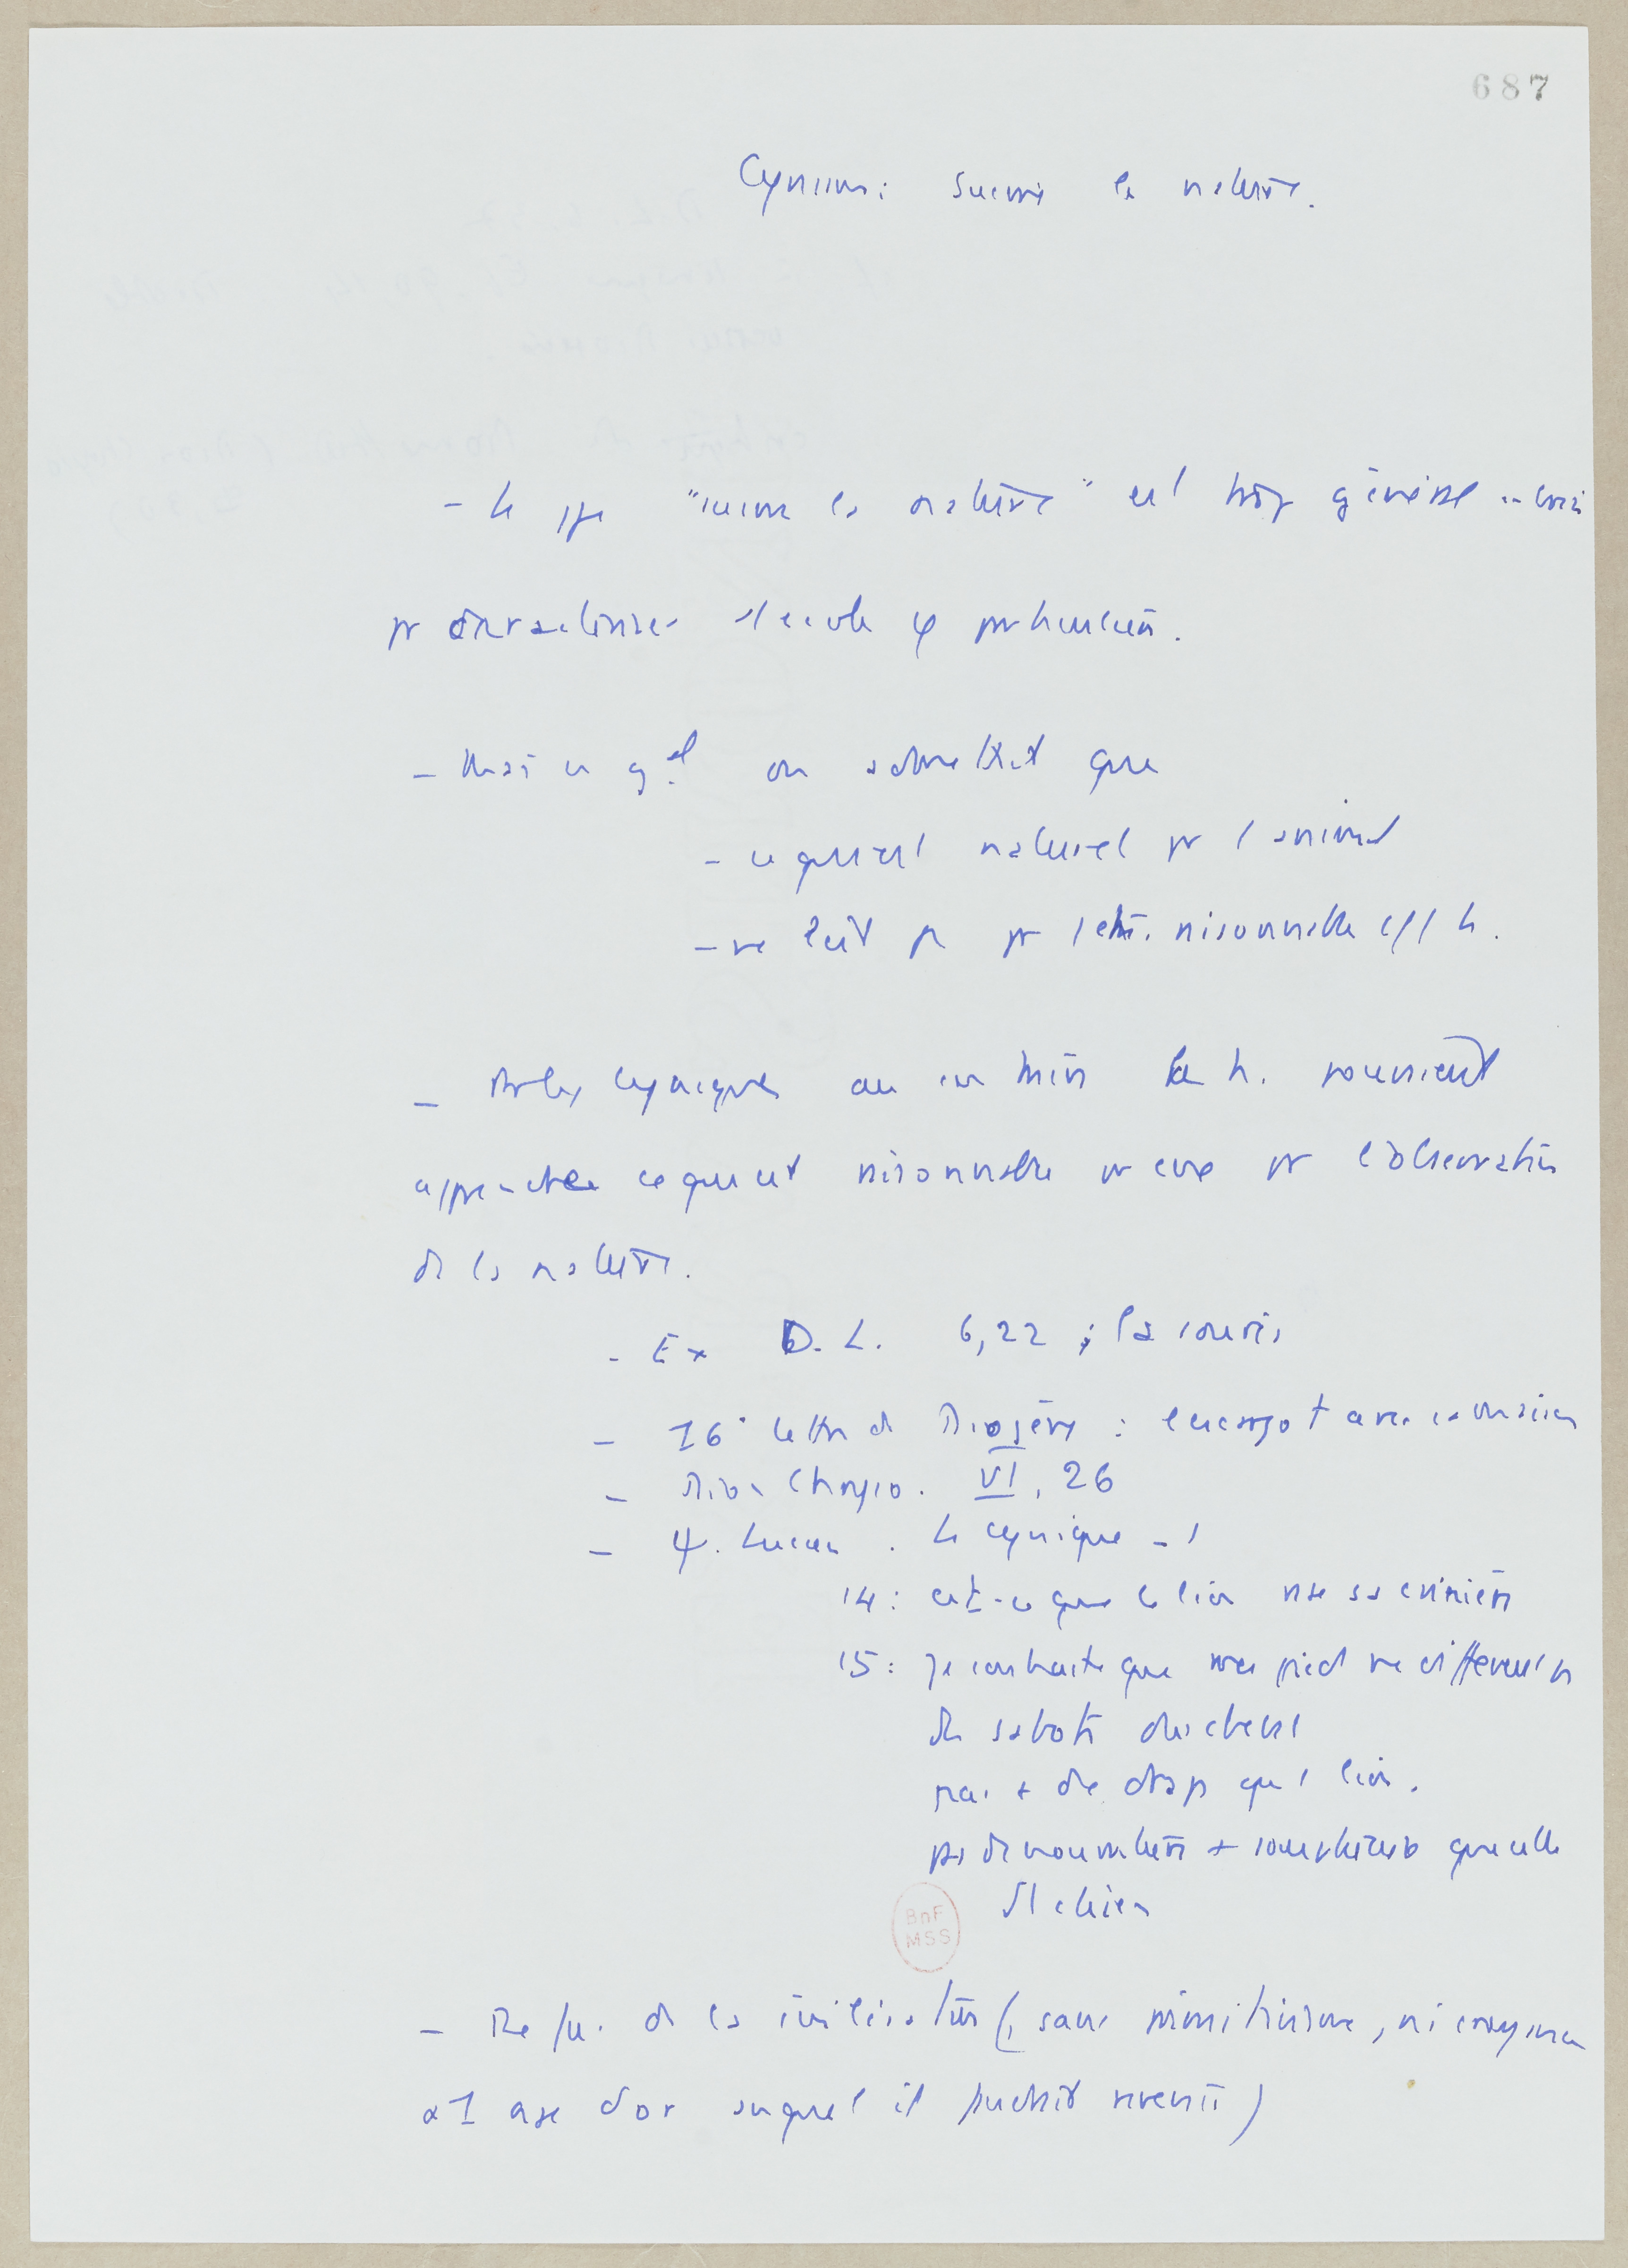 687
Cynisme: suivre la nature.
- Le ppe "suivre la nature" est trop général
pr caractériser 1 école φ particulière.
- Mais en gal on admettait que
- ce qui est naturel pr l'animal
- ne l'est pas pr l' raisonnable
- Or les cyniques au contraire h. pouvait
apprendre ce qui est raisonnable par l'observation
de la nature.
- Ex D.L. 6,22 ; la souris
- 16° lettre de Diogène : escargot avec sa maison
- Dion Chryso. VI, 26
- Lucien. Le cynique
14: est-ce que le lion rase sa crinière
15: je souhaite que mes pieds ne diffèrent pas
des sabots des chevaux
pas + de draps qu'1 lion.
pas de nourriture + somptueuse que celle
d'1 chien
BnF
MSS
- Refus de la civilisation (sans primitivisme, ni croyance
à 1 age d'or auquel il faudrait revenir)